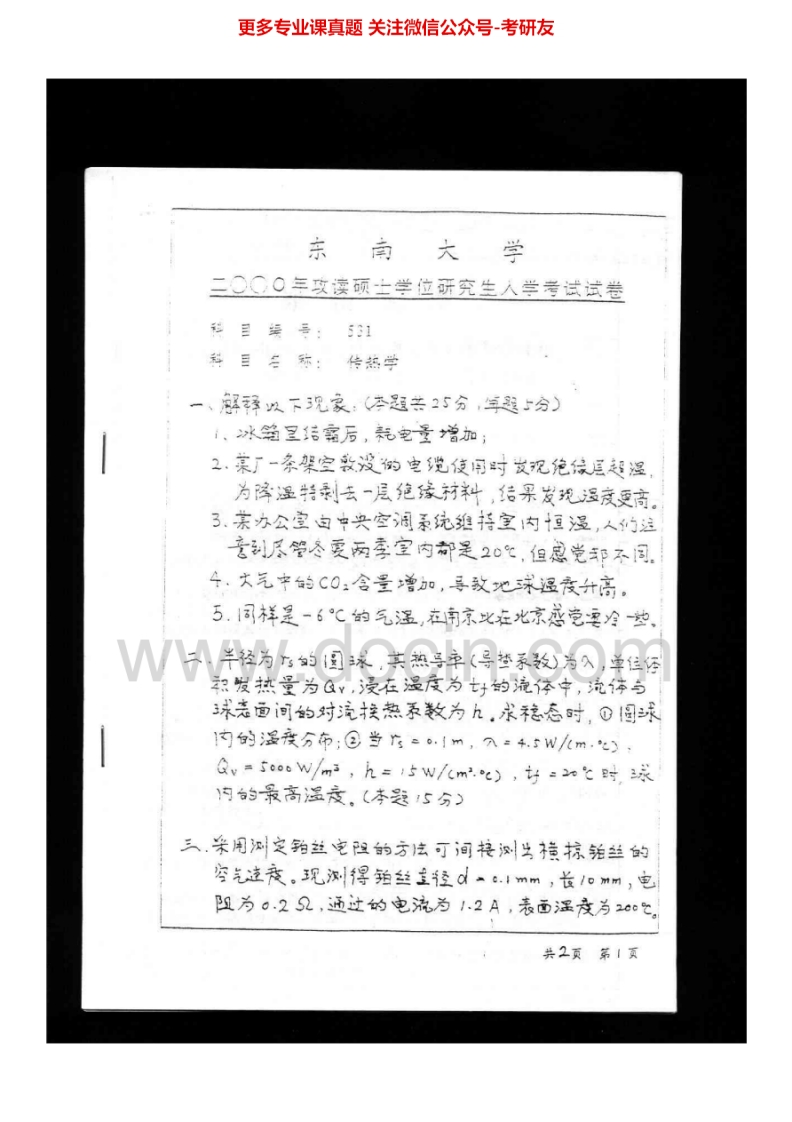 更多专业课真题 关注微信公众号-考研友
东 南 大 学
二〇〇〇年攻读硕士学位研究生入学考试试卷
科 目 编 号: 531
科 目 名 称: 传热学
一、解释以下现象:(本题共25分,每题5分)
1、冰箱里结霜后,耗电量增加;
2.某厂一条架空敷设的电缆使用时发现绝缘层超温,
为降温特剥去一层绝缘材料,结果发现温度更高。
3.某办公室由中央空调系统维持室内恒温,人们注
意到尽管冬夏两季室内都是20℃,但感觉却不同。
4.大气中的CO₂含量增加,导致地球温度升高。
5.同样是-6℃的气温,在南京比在北京感觉要冷一些。
二.半径为rs的圆球,其热导率(导热系数)为λ,单位体
积发热量为Qv,浸在温度为tf的流体中,流体与
球表面间的对流换热系数为h。求稳态时,①圆球
内的温度分布;②当rs=0.1m,λ=4.5W/(m·℃),
Qv=5000W/m³,h=15W/(m²·℃),tf=20℃时,球
内的最高温度。(本题15分)
三.采用测定铂丝电阻的方法可间接测出横掠铂丝的
空气速度。现测得铂丝直径d=0.1mm,长10mm,电
阻为0.2Ω,通过的电流为1.2A,表面温度为200℃。
共2页 第1页
www.docin.com